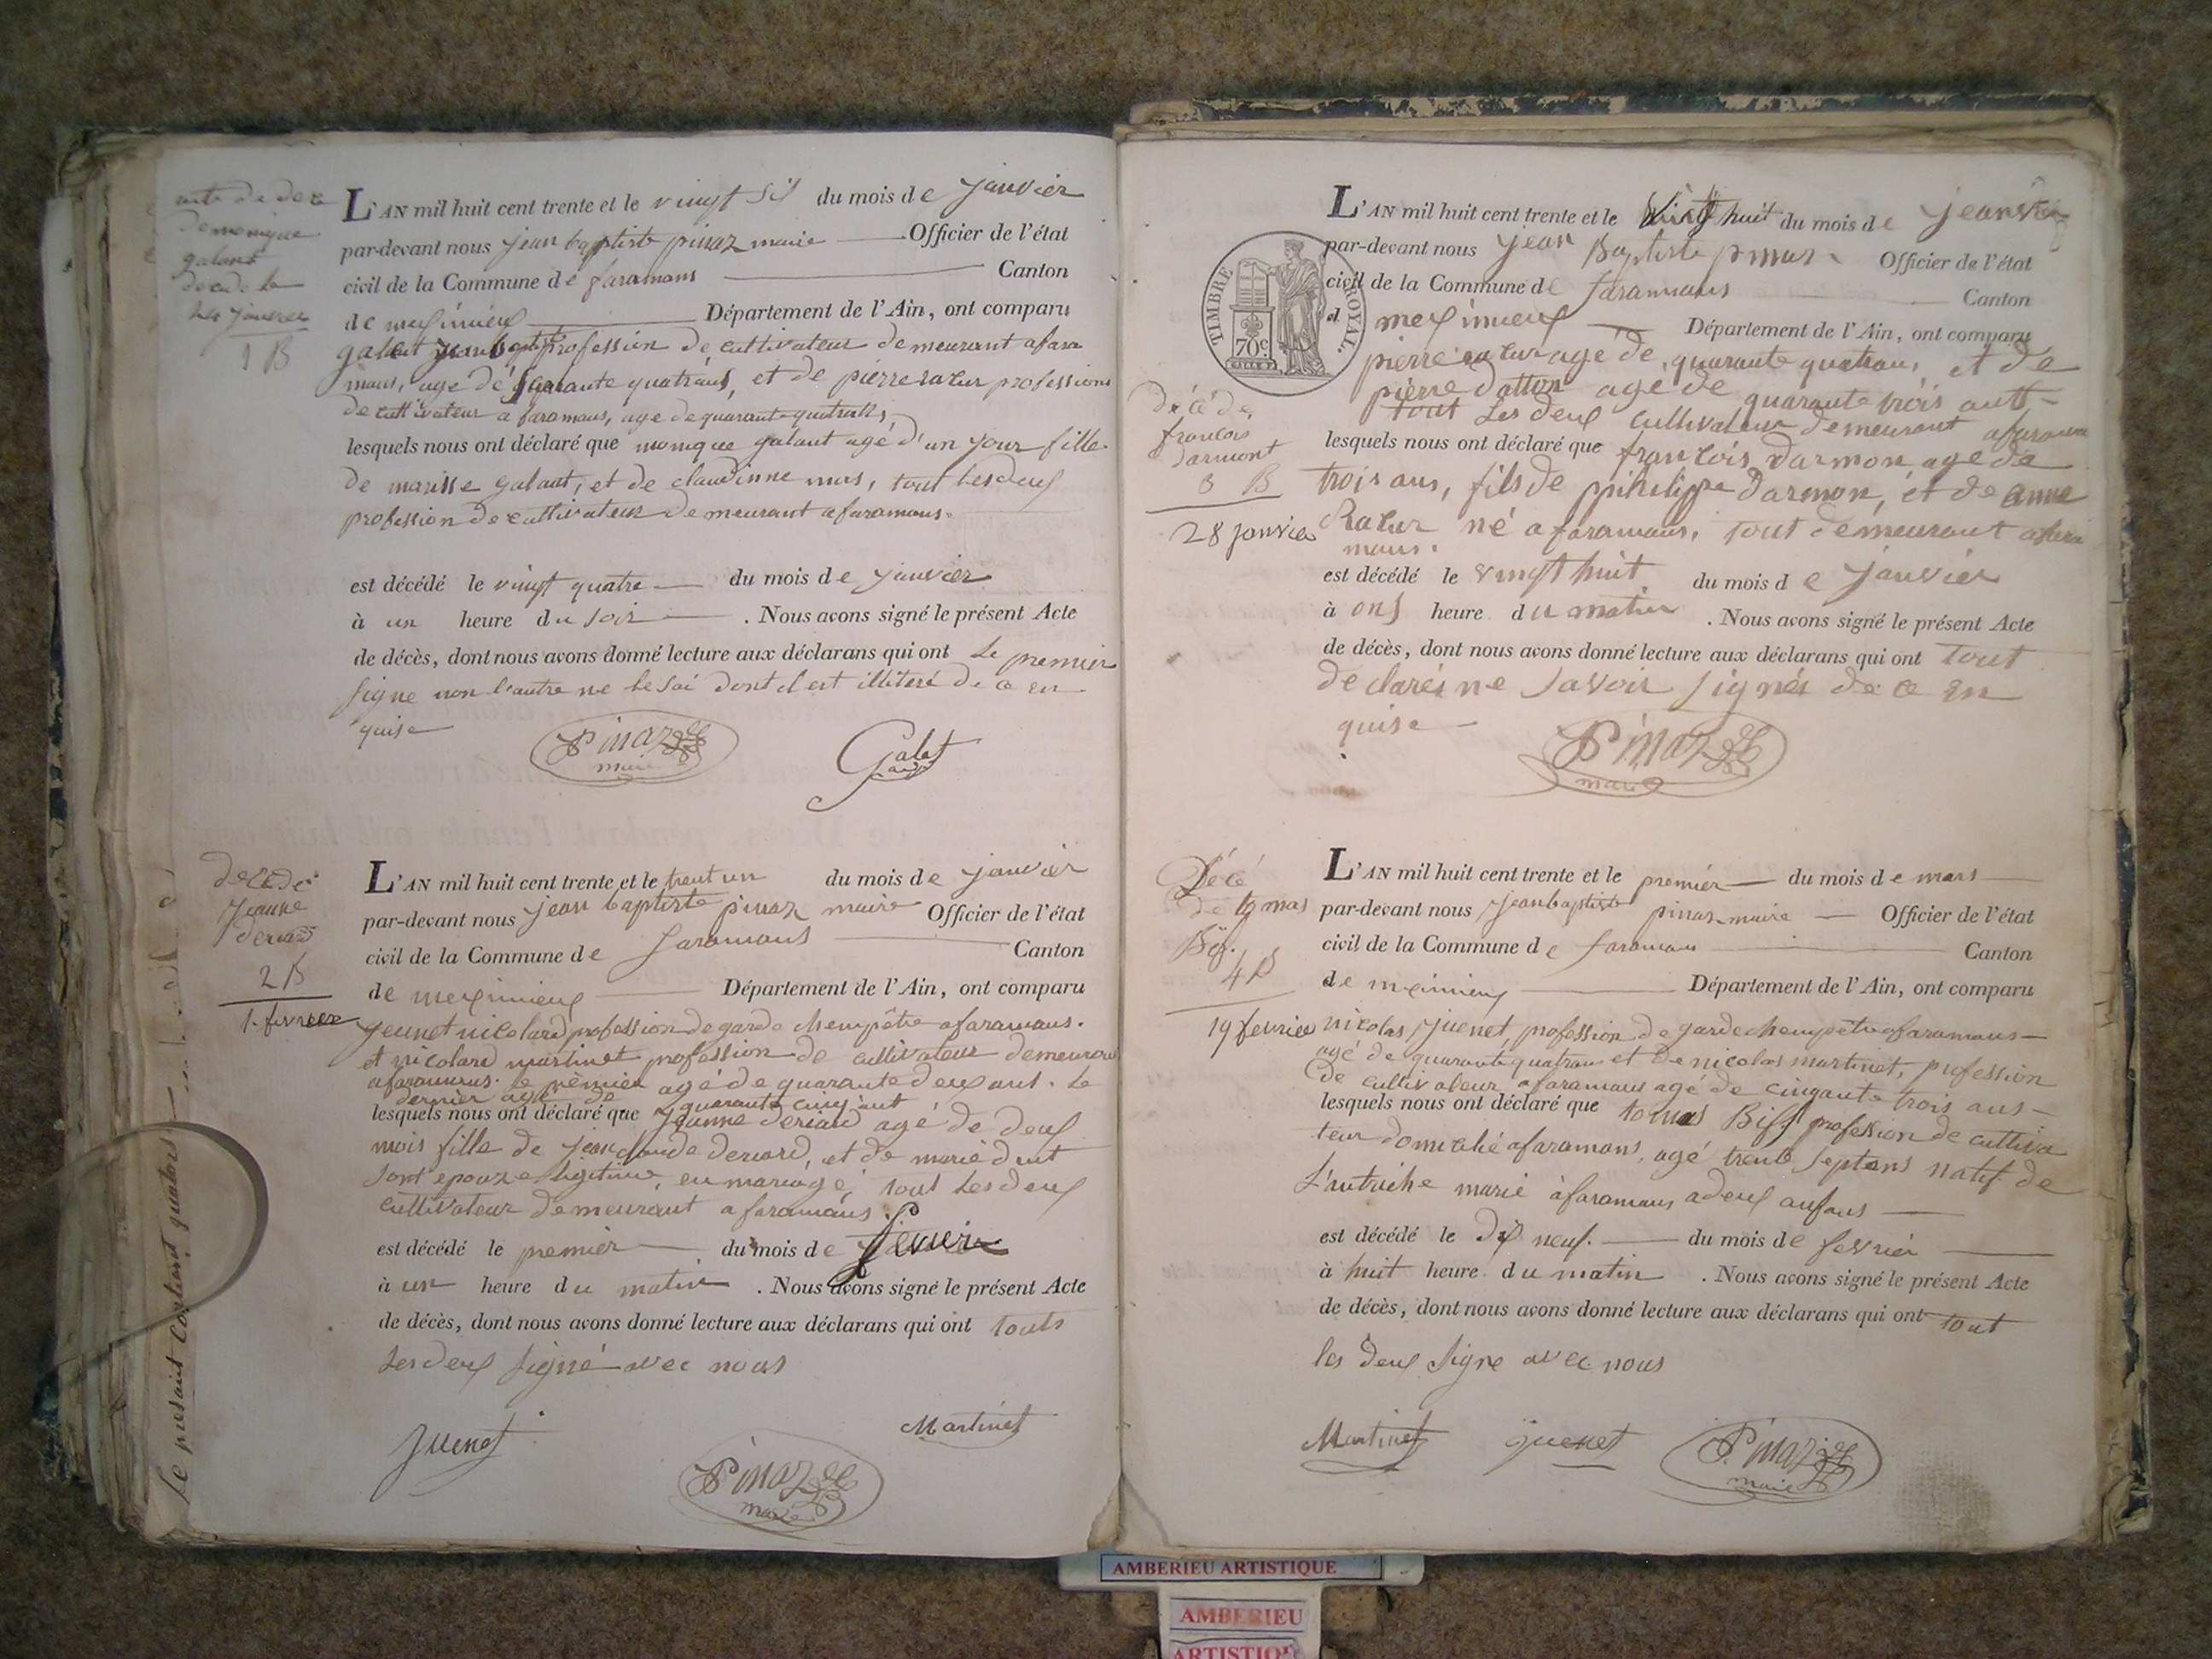 acte de dece
de monique
galant
decede le
1 B
L'AN mil huit cent trente et le vingt six du mois de janvier
par-devant nous jean baptiste pinaz maire Officier de l'état
civil de la Commune de faramans Canton
de meximieux Département de l'Ain, ont comparu
galant profession de cultivateur demeurant a fara
mans, age de quarante quatrans, et de pierre ratur profession
de cultivateur a faramans, age de quarante quatrans,
lesquels nous ont déclaré que monique galant agé d'un jour fille
de galant, et de claudinne mas, tout les deux
profession de cultivateur demeurant a faramans.
est décédé le vingt quatre du mois de janvier
à un heure du soir . Nous avons signé le présent Acte
de décès, dont nous avons donné lecture aux déclarans qui ont le premier
signe non l'autre ne le sai dont il est illiteré de ce en
quise
Pinaz
maire
Galat
decede
jeanne
deriard
2 B
1. fevrier
L'AN mil huit cent trente et le trent un du mois de janvier
par-devant nous jean baptiste pinaz maire Officier de l'état
civil de la Commune de faramans Canton
de meximieux Département de l'Ain, ont comparu
jeunet nicolard profession de garde chempêtre a faramans.
et nicolard martinet profession de cultivateur demeurant
a faramans. le premier agé de quarante deux ans. le
dernier agé de quarante cinq ant
lesquels nous ont déclaré que jeanne deriard agé de deux
mois fille de jean claude deriard, et de marie dut
sont epouze ligitime, en mariage, tout les deux
cultivateur demeurant a faramans.
est décédé le premier du mois de fevrier
à un heure du matin . Nous avons signé le présent Acte
de décès, dont nous avons donné lecture aux déclarans qui ont touts
les deux signé avec nous
Juenet
Martinet
Pinaz
maire
Le présent contient quatorze
TIMBRE ROYAL.
70 c
L'AN mil huit cent trente et le vingt huit du mois de jeanvier
par-devant nous jean Baptiste pinaz Officier de l'état
civil de la Commune de faramans Canton
d meximieux Département de l'Ain, ont comparu
pierre ratur agé de quarante quatrans, et de
pierre datton agé de quarante trois antt
tout les deux cultivateur demeurant a faraman
décé de
francois
darmont
3 B
28 janvier
lesquels nous ont déclaré que françois darmon age de
trois ans, fils de philippe darmon, et de anne
Ratur né a faramans, tout demeurant a fara
mans.
est décédé le vingt huit du mois de janvier
à onz heure du matin . Nous avons signé le présent Acte
de décès, dont nous avons donné lecture aux déclarans qui ont tout
declarés ne savoir signés de ce en
quise
Pinaz
maire
Décé
de tomas
4 B
19 fevrier
L'AN mil huit cent trente et le premier du mois de mars
par-devant nous jean baptiste pinaz maire Officier de l'état
civil de la Commune de faramans Canton
de meximieux Département de l'Ain, ont comparu
nicolas juenet, profession de garde chempetre a faramans
agé de quarante quatran et de nicolas martinet, profession
de cultivateur a faramans agé de cinqante trois ans
lesquels nous ont déclaré que tomas profession de cultiva
teur domicilié a faramans, agé trente septans natif de
l'autriche marié a faramans a deux anfans
est décédé le dix neuf. du mois de fevrier
à huit heure du matin . Nous avons signé le présent Acte
de décès, dont nous avons donné lecture aux déclarans qui ont tout
les deux signe avec nous
Martinet
Juenet
Pinaz
maire
AMBERIEU ARTISTIQUE
AMBERIEU
ARTISTIQUE